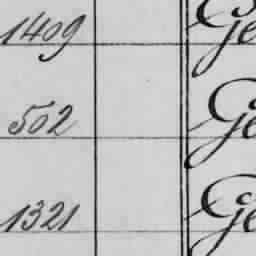 1409 Ge
502 Ge
1321 Ge